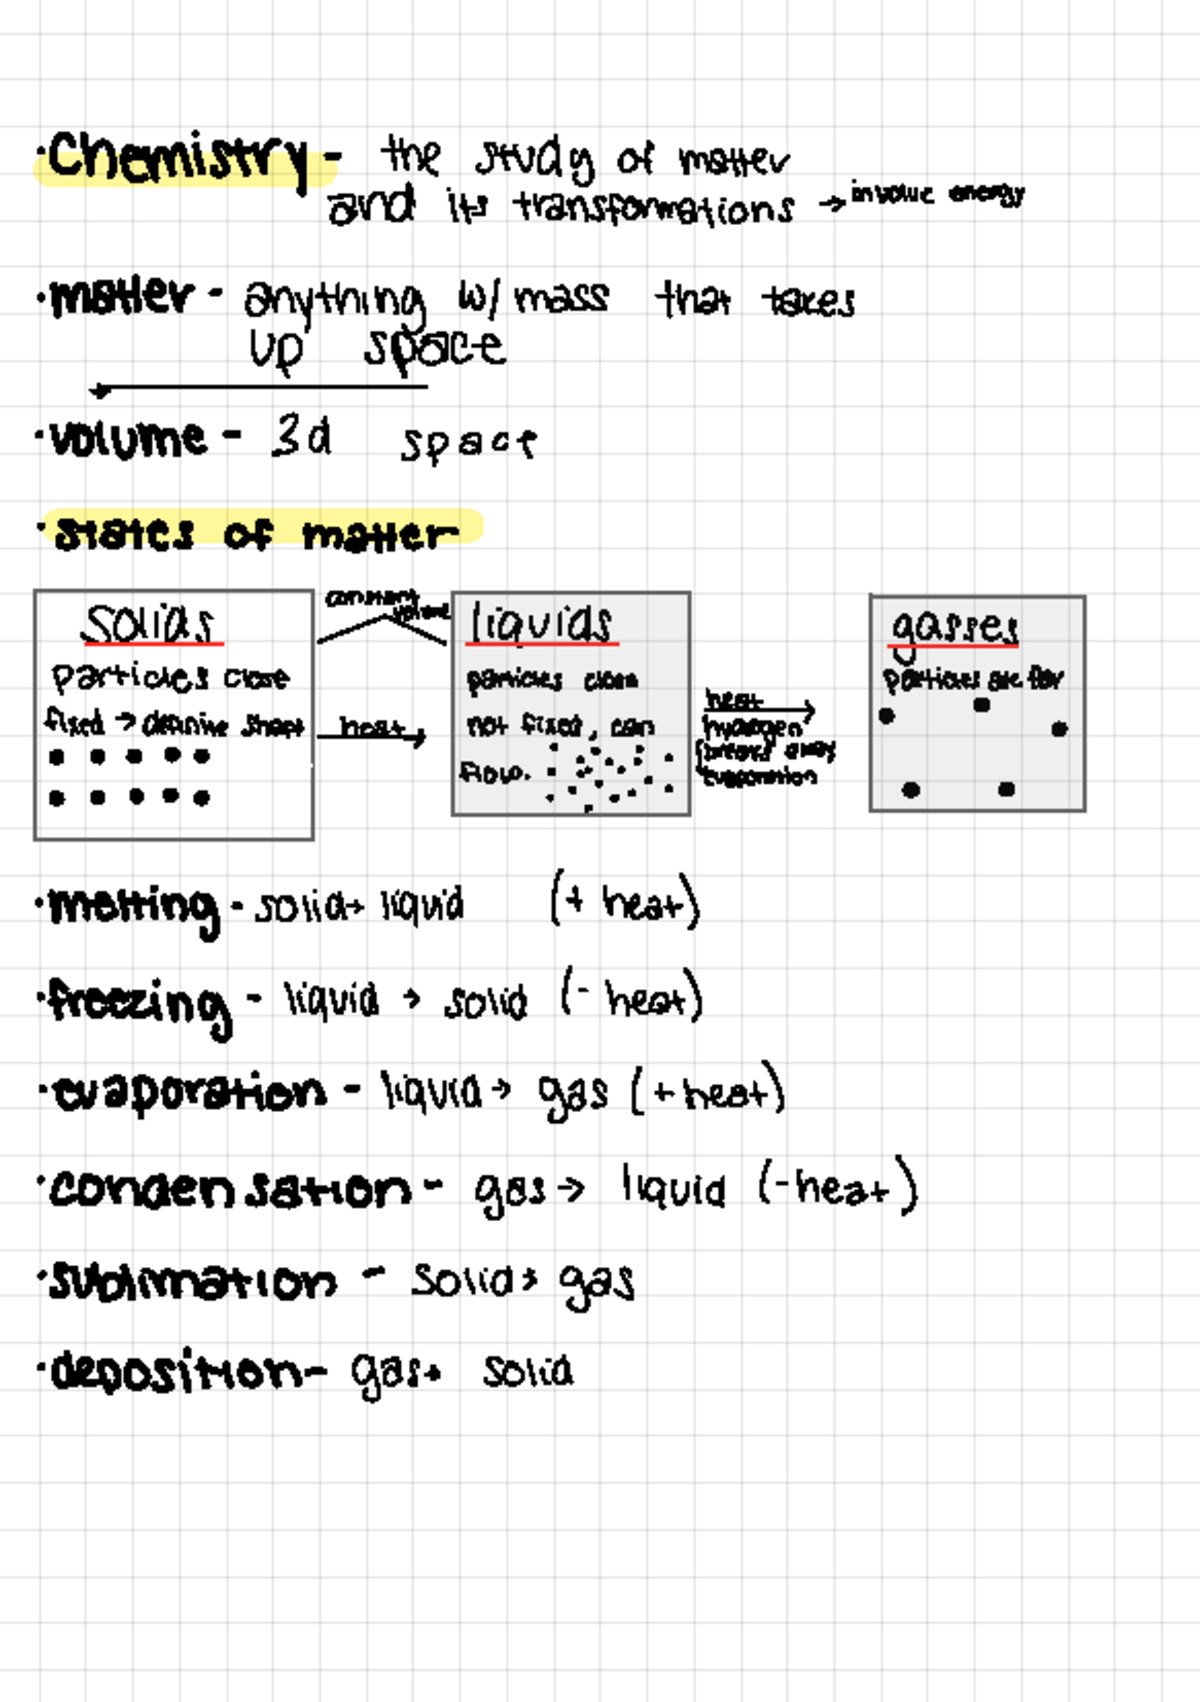 ·Chemistry - the study of matter
and its transformations → involve energy
·matter - anything w/ mass that takes
up space
·volume - 3d space
·states of matter
solids
particles close
fixed → definitive shape
constant volume
heat
liquids
particles close
not fixed, can
flow.
heat
hydrogen
breaks away
evaporation
gasses
particles are far
·melting - solid → liquid (+ heat)
·freezing - liquid → solid (- heat)
·evaporation - liquid → gas (+ heat)
·condensation - gas → liquid (- heat)
·sublimation - solid → gas
·deposition - gas → solid